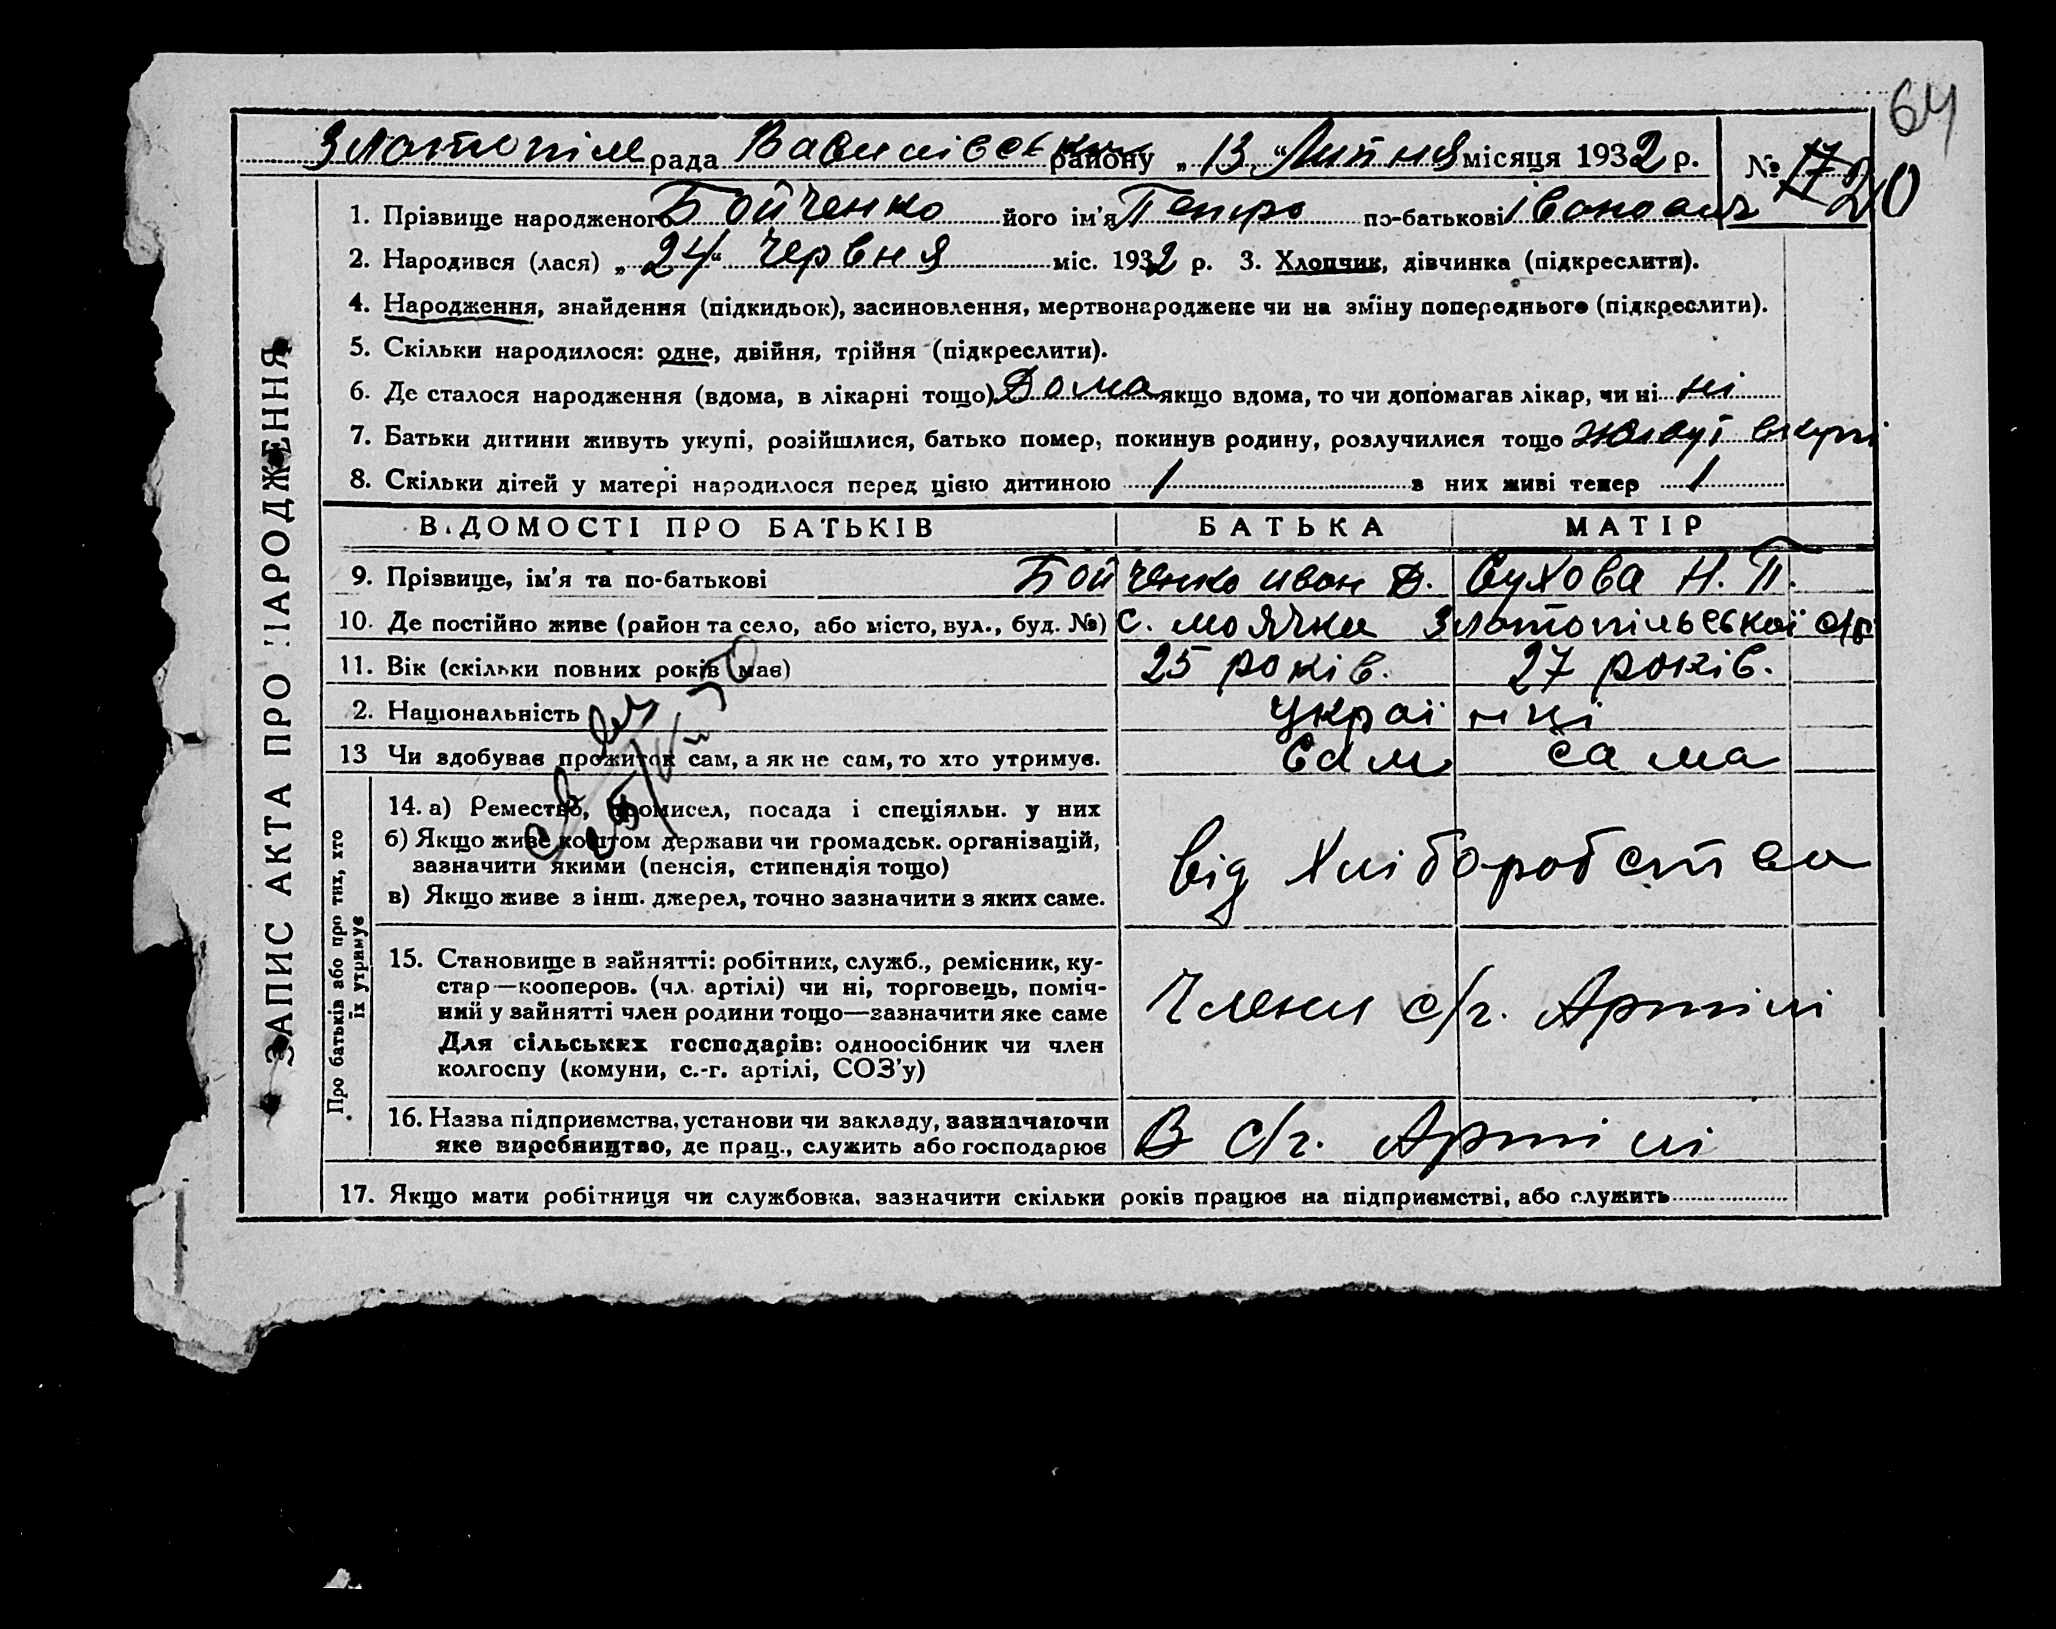 64
Златопіле рада Василівськ району „ 13 “ Липня місяця 1932 р. № 17 20
ЗАПИС АКТА ПРО НАРОДЖЕННЯ
1. Прізвище народженого Бойченко його ім'я Петро по-батькові Іванович
2. Народився (лася) „ 24 “ червня міс. 1932 р. 3. Хлопчик, дівчинка (підкреслити).
4. Народження, знайдення (підкидьок), засиновлення, мертвонароджене чи на зміну попереднього (підкреслити).
5. Скільки народилося: одне, двійня, трійня (підкреслити).
6. Де сталося народження (вдома, в лікарні тощо) Дома якщо вдома, то чи допомагав лікар, чи ні ні
7. Батьки дитини живуть укупі, розійшлися, батько помер, покинув родину, розлучилися тощо живуть вкупі
8. Скільки дітей у матері народилося перед цією дитиною 1 з них живі тепер 1
ВІДОМОСТІ ПРО БАТЬКІВ БАТЬКА МАТІР
9. Прізвище, ім'я та по-батькові Бойченко иван Д. Сухова Н. П.
10. Де постійно живе (район та село, або місто, вул., буд. №) с. моячки Златопільської с/р
11. Вік (скільки повних років має) 25 років. 27 років.
2. Національність українці
13 Чи здобуває прожиток сам, а як не сам, то хто утримує. Сам сама
Про батьків або про тих, хто
їх утримує
14. а) Ремество, промисел, посада і спеціяльн. у них
б) Якщо живе коштом держави чи громадськ. організацій,
зазначити якими (пенсія, стипендія тощо)
в) Якщо живе з інш. джерел, точно зазначити з яких саме.
від Хліборобства
15. Становище в зайнятті: робітник, служб., ремісник, ку-
стар—кооперов. (чл. артілі) чи ні, торговець, поміч-
ний у зайнятті член родини тощо—зазначити яке саме
Для сільських господарів: одноосібник чи член
колгоспу (комуни, с.-г. артілі, СОЗ'у)
Члени с/г. Артілі
16. Назва підприємства, установи чи закладу, зазначаючи
яке виробництво, де прац., служить або господарює
В с/г. Артілі
17. Якщо мати робітниця чи службовка, зазначити скільки років працює на підприємстві, або служить